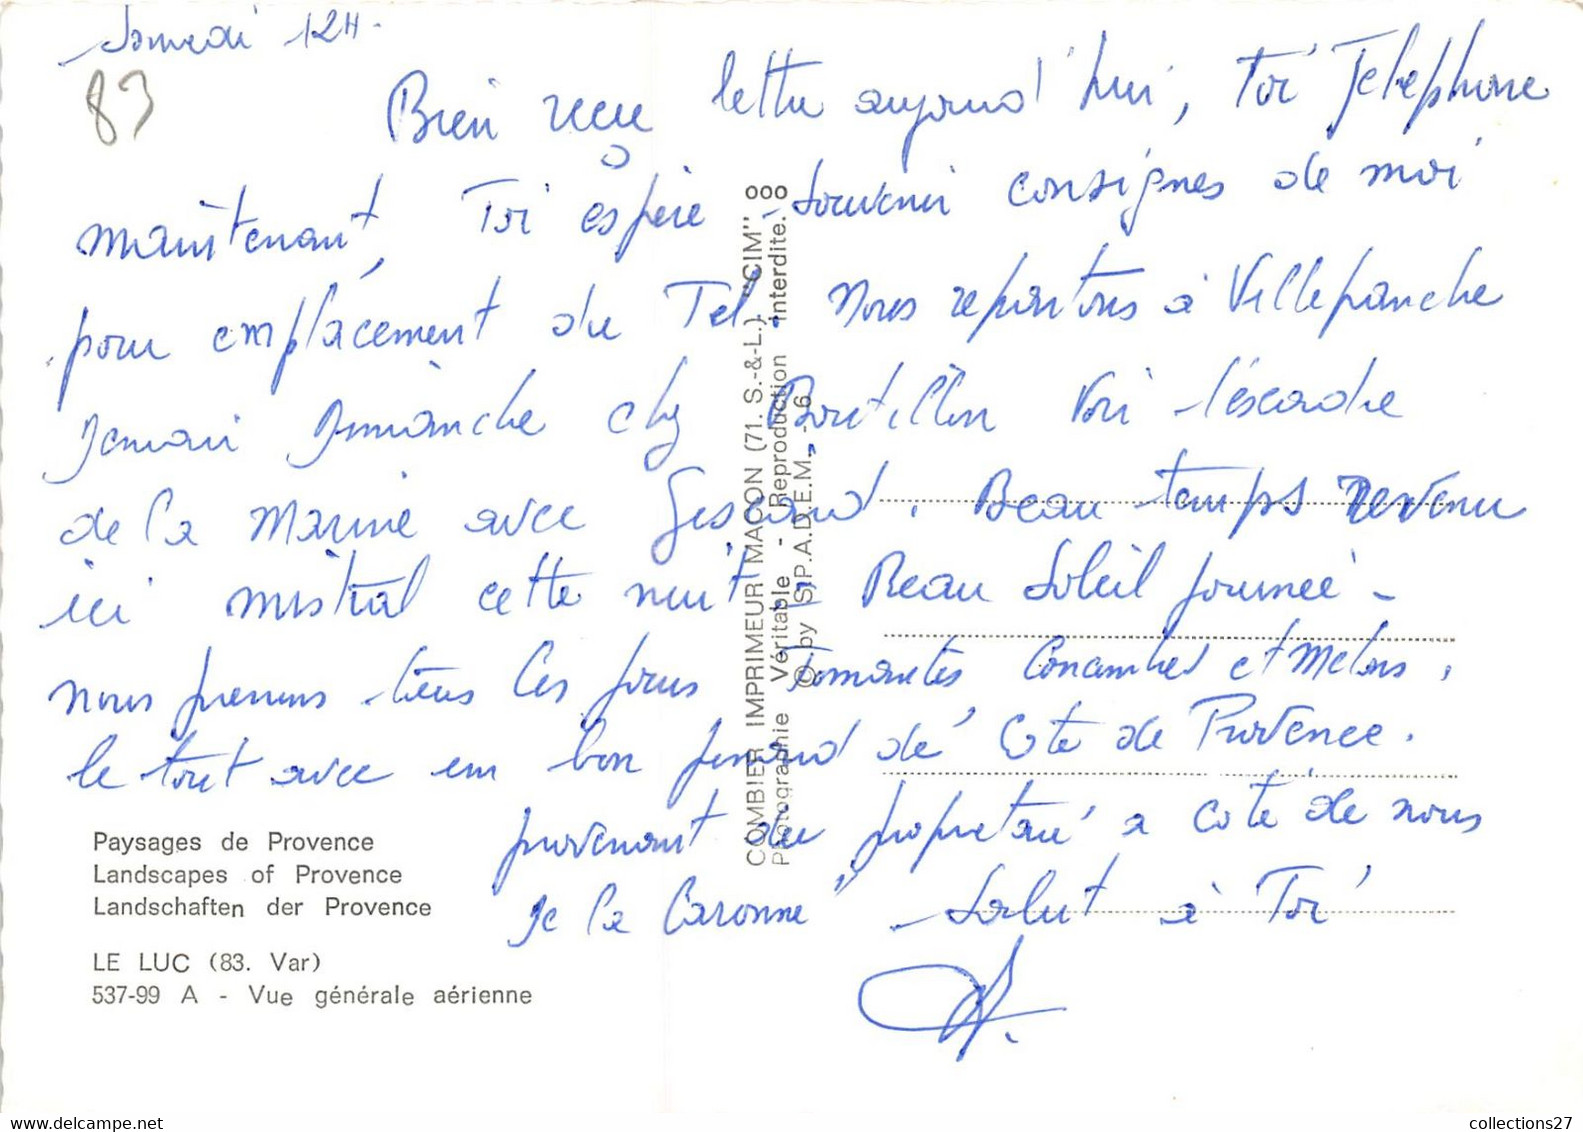 Samedi 12H.
83
Bien reçu lettre aujourd'hui, Toi Telephone
maintenant, Toi espère Souvenir consignes de moi
pour emplacement du Tel. Nous repartons à Villefranche
demain Dimanche chez Boutillon Voir l'éscadre
de la Marine avec . Beau temps revenu
ici mistral cette nuit - Beau Soleil journée -
nous prenons tous les jours Tomates Concombres et Melons,
le tout avec un bon pinard de Cote de Provence.
provenant du propriétaire a coté de nous
"de la Caronne" Salut à Toi
Paysages de Provence
Landscapes of Provence
Landschaften der Provence
LE LUC (83. Var)
537-99 A - Vue générale aérienne
COMBIER IMPRIMEUR MACON (71. S.-&-L.) "CIM"
Photographie Véritable - Reproduction interdite.
© by S.P.A.D.E.M. - 6
collections27